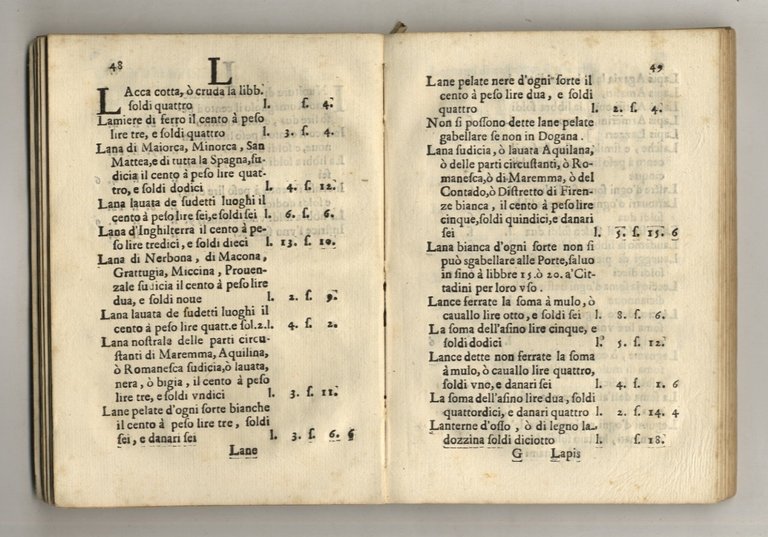 48
L
LAcca cotta, ò cruda la libb.
soldi quattro l. s. 4.
Lamiere di ferro il cento à peso
lire tre, e soldi quattro l. 3. s. 4.
Lana di Maiorca, Minorca, San
Mattea,e di tutta la Spagna,su-
dicia il cento à peso lire quat-
tro, e soldi dodici l. 4. s. 12.
Lana lauata de sudetti luoghi il
cento à peso lire sei,e soldi sei l. 6. s. 6.
Lana d'Inghilterra il cento à pe-
so lire tredici, e soldi dieci l. 13. s. 10.
Lana di Nerbona, di Macona,
Grattugia, Miccina, Prouen-
zale sudicia il cento à peso lire
dua, e soldi noue l. 2. s. 9.
Lana lauata de sudetti luoghi il
cento à peso lire quatt.e sol.2.l. 4. s. 2.
Lana nostrala delle parti circu-
stanti di Maremma, Aquilina,
ò Romanesca sudicia,ò lauata,
nera, ò bigia, il cento à peso
lire tre, e soldi vndici l. 3. s. 11.
Lane pelate d'ogni sorte bianche
il cento à peso lire tre, soldi
sei, e danari sei l. 3. s. 6. 6
Lane
49
Lane pelate nere d'ogni sorte il
cento à peso lire dua, e soldi
quattro l. 2. s. 4.
Non si possono dette lane pelate
gabellare se non in Dogana.
Lana sudicia, ò lauata Aquilana,
ò delle parti circustanti, ò Ro-
manesca,ò di Maremma, ò del
Contado,ò Distretto di Firen-
ze bianca, il cento à peso lire
cinque,soldi quindici,e danari
sei l. 5. s. 15. 6
Lana bianca d'ogni sorte non si
può sgabellare alle Porte,saluo
in sino à libbre 15.ò 20. a'Cit-
tadini per loro vso.
Lance ferrate la soma à mulo, ò
cauallo lire otto, e soldi sei l. 8. s. 6.
La soma dell'asino lire cinque, e
soldi dodici l. 5. s. 12.
Lance dette non ferrate la soma
à mulo, ò cauallo lire quattro,
soldi vno, e danari sei l. 4. s. 1. 6
La soma dell'asino lire dua, soldi
quattordici, e danari quattro l. 2. s. 14. 4
Lanterne d'osso, ò di legno la
dozzina soldi diciotto l. s. 18.
G Lapis